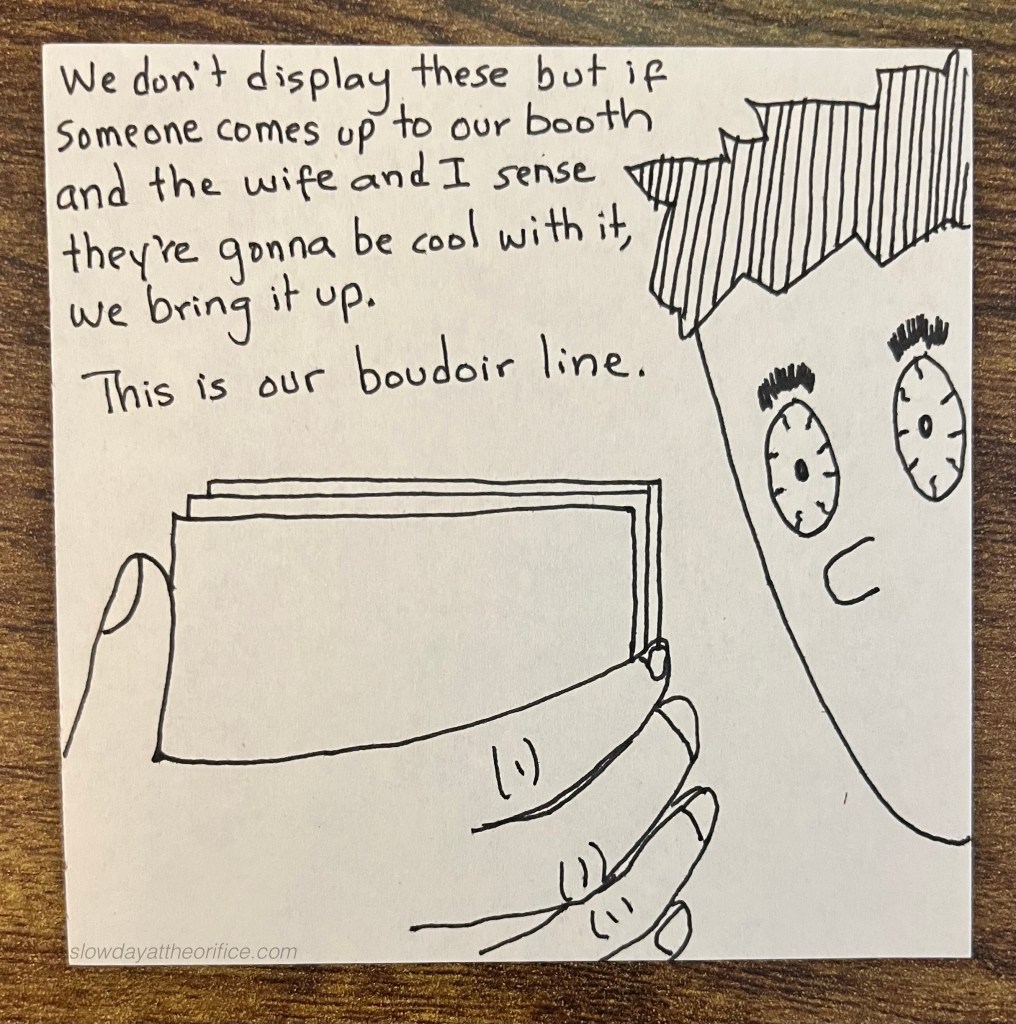 We don't display these but if
someone comes up to our booth
and the wife and I sense
they're gonna be cool with it,
we bring it up.
This is our boudoir line.
slowdayattheorifice.com